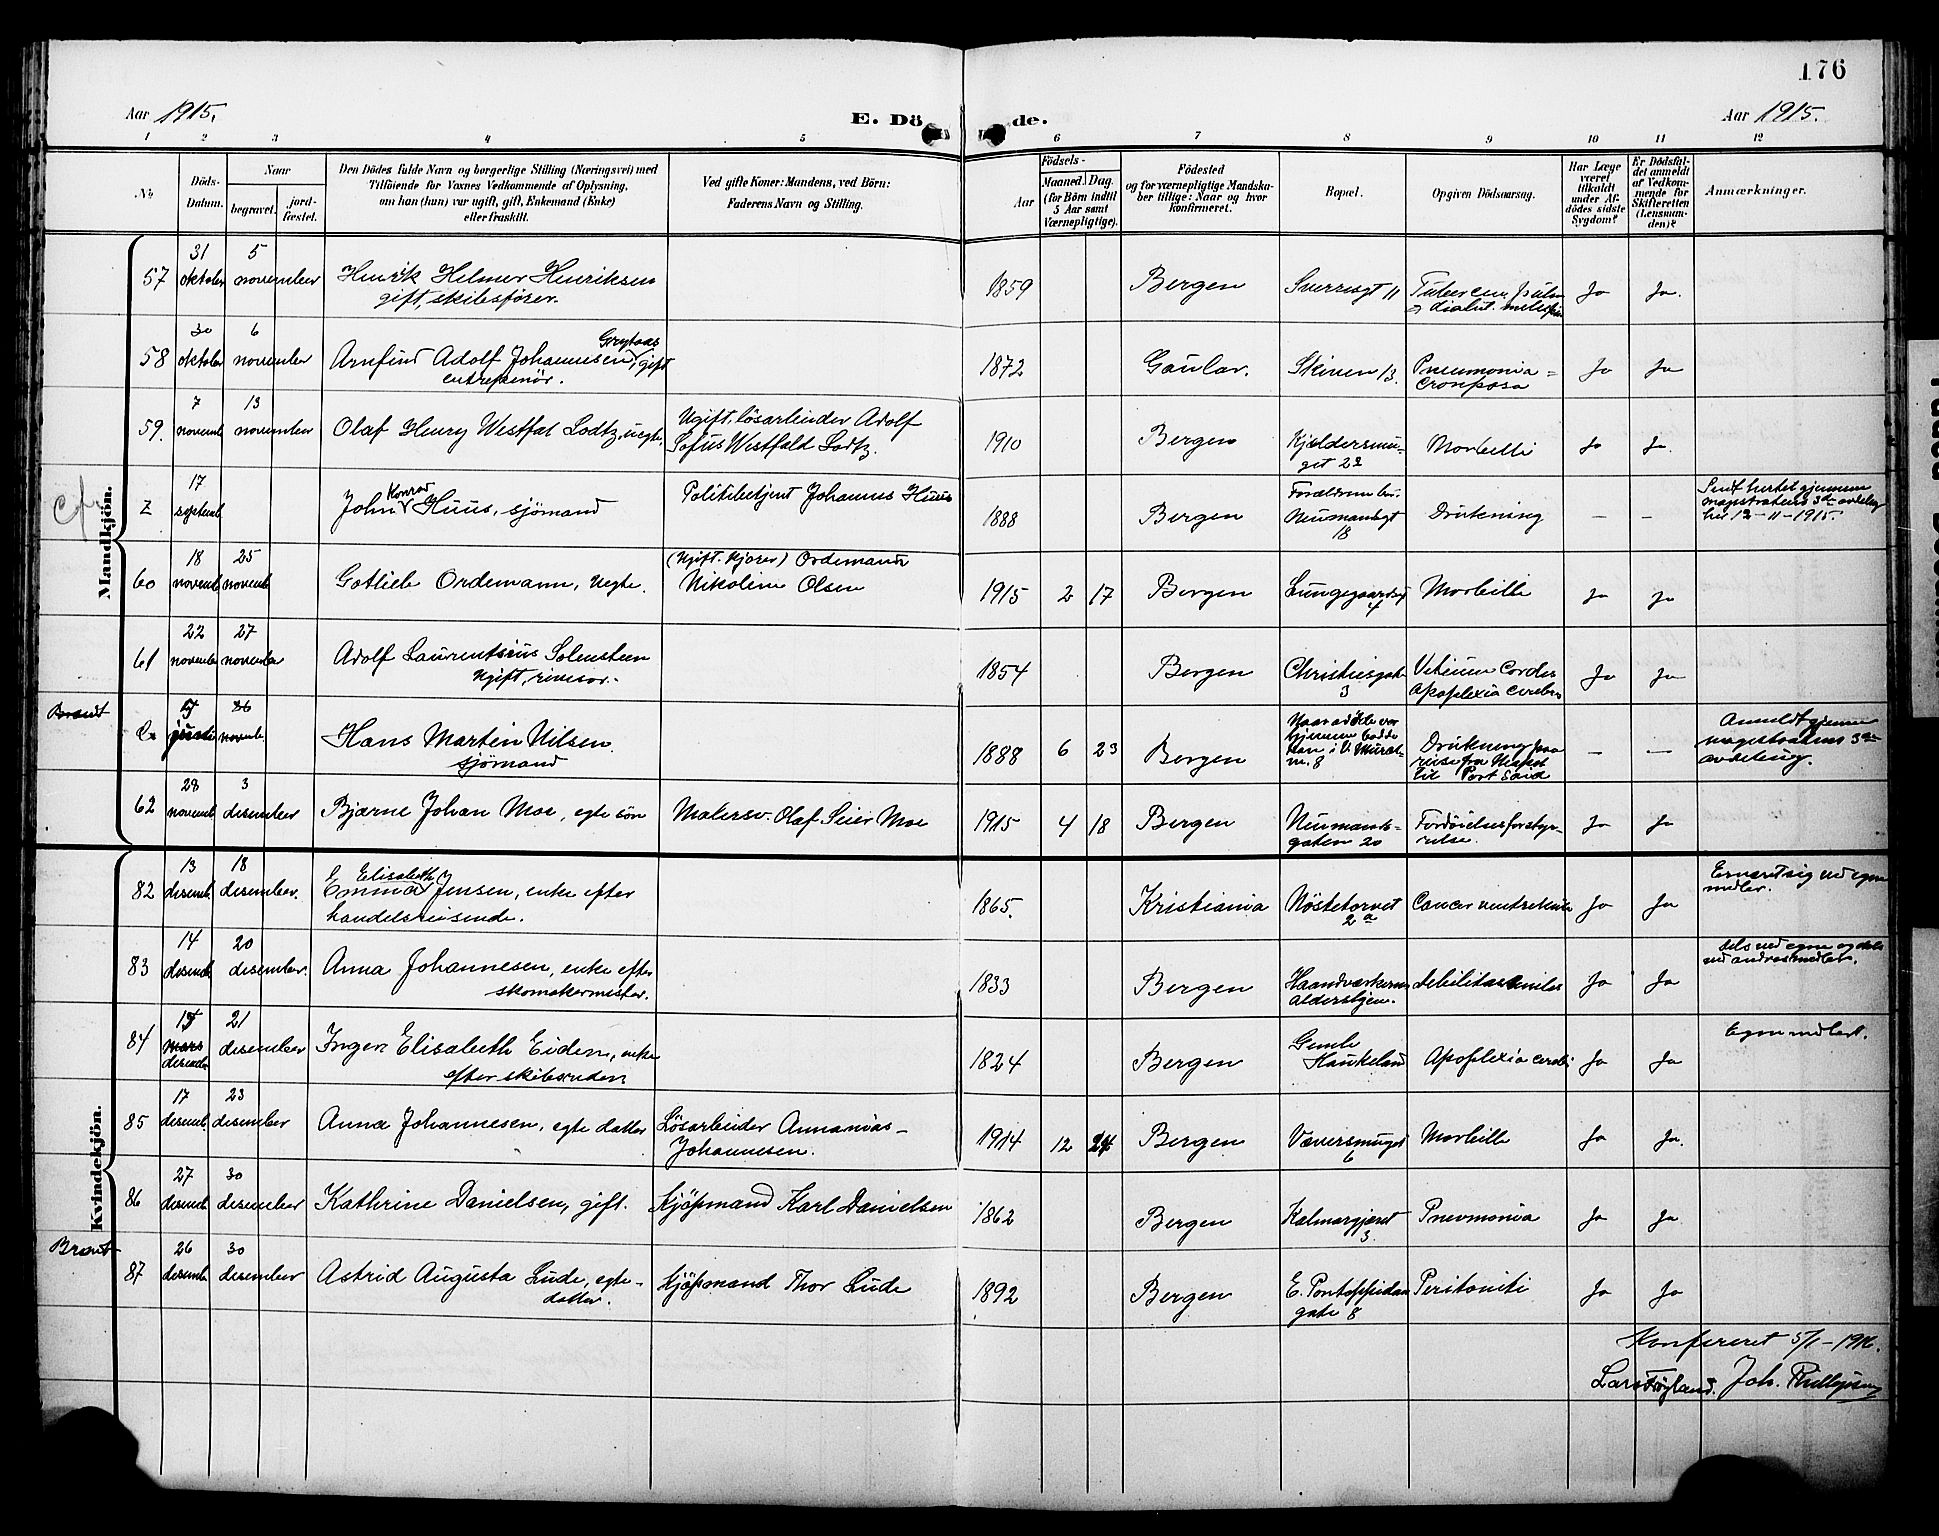 176
Aar 1915.
E. Dö de.
Aar 1915.
1 2 3 4 5 6 7 8 9 10 11 12
No.
Döds-Datum.
Naar
begravet.
jord-fæstet.
Den Dödes fulde Navn og borgerlige Stilling (Næringsvei) med
Tilföiende for Voxnes Vedkommende af Oplysning,
om han (hun) var ugift, gift, Enkemand (Enke)
eller fraskilt.
Ved gifte Koner: Mandens, ved Börn:
Faderens Navn og Stilling.
Aar
Födsels-
Maaned. Dag.
(for Börn indtil
5 Aar samt
Værnepligtige).
Födested
og for værnepligtige Mandska-
ber tillige: Naar og hvor
konfirmeret.
Bopæl.
Opgiven Dödsaarsag.
Har Læge
været
tilkaldt
under Af-
dödes sidste
Sygdom?
Er Dödsfal-
det anmeldt
af Vedkom-
mende for
Skifteretten
(Lensman-
den)?
Anmærkninger.
Mandkjön.
57 31 oktober 5 november Henrik Helmer Henriksen
gift, skibsfører.
1859 Bergen Sverresgt 11 Ja Ja.
58 30 oktober 6 november Arnfind Adolf Johannesen Grytaas, gift
entreprenör.
1872 Gaular. Skiven 13. Pneumonia =
Crouposa Ja Ja
59. 7 novemb 13 november Olaf Henry Westfal Lodtz, uegte.
Ugift, lösarbeider Adolf
Sofus Westfald Lodtz.
1910 Bergen Kjeldersmu-
get 22 Morbilli Ja Ja.
Z 17 septemb John Konrad Huus, sjömand
Politibetjent Johannes Huus
1888 Bergen Forældrene bor:
Neumansgt
18 Drukning — —
Sendt hertil gjennem
magistratens 3die avdeling
her 12-11-1915.
60 18 novemb 25 novemb Gotlieb Ordemann, uegte.
Ordemann
Nikoline Olsen
1915 2 17 Bergen Lungegaardsgt
4 Morbilli Ja Ja
61 22 novembe 27 november Adolf Laurentsius Solensteen
Ugift, revisor.
1854 Bergen Christiesgate
3 Vitium Cordis
Apoplexia cerebri Ja Ja
Brandt
novemb. Hans Martin Nilsen.
sjömand
1888 6 23 Bergen
Drukning paa
reise fra
til Port Said — —
Anmeldt gjennem
magistratens 3die
avdeling.
62 28 novemb 3 desember Bjarne Johan Moe, egte sön
Malersv. Olaf Seier Moe
1915 4 18 Bergen Neumanns-
gaten 20 Fordöielsesforstyr-
relse. Ja Ja
Kvindekjön.
82 13 desemb. 18 desember. E Emma Elisabeth Jensen, enke efter
handelsreisende.
1865. Kristiania Nöstetorvet
2a Cancer ventriculi Ja Ja
Ernæret sig ved egne
midler.
83 14 desemb 20 desember. Anna Johannesen, enke efter
skomakermester.
1833 Bergen Haandverkernes
aldershjem. debilitas senilis Ja Ja
dels ved egne og dels
ved andres midler.
84 15 mars
desember 21 desember Inger Elisabeth Eiden, enke
efter skibsreder
1824 Bergen Gamle
Haukeland Apoplexia cerebri Ja Ja
Egne midler.
85 17 desemb. 23 desember Anna Johannesen, egte datter
Lösarbeider Annanias
Johannesen.
1914 12 24 Bergen Væversmuget
6 Morbilli Ja Ja.
86 27 desemb. 30 desember Kathrine Danielsen, gift.
Kjöpmand Karl Danielsen
1862 Bergen Kalmargjeret
3. Pnevmonia Ja Ja
Brandt
87 26 desemb 30 desember Astrid Augusta Lude, egte
datter.
Kjöpmand Thor Lude
1892 Bergen E. Pontoppidans
gate 8 Peritoniti Ja Ja
Konfereret 5/1-1916.
Lars Fögland. Joh.